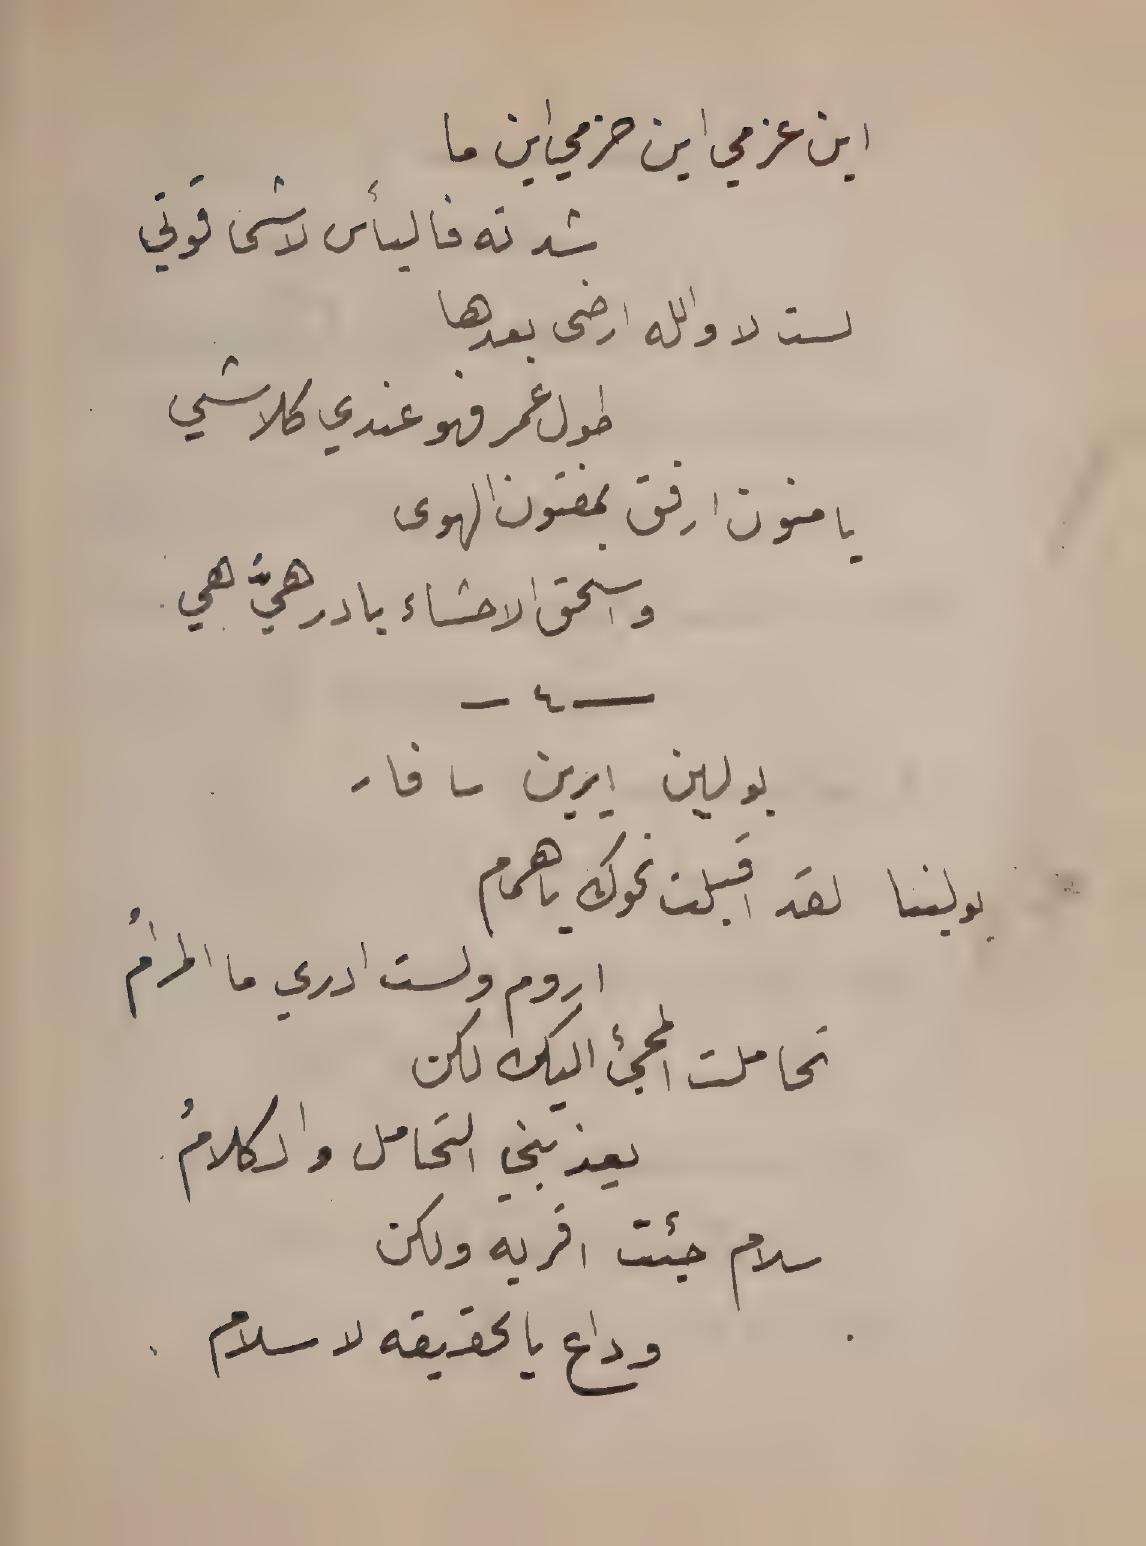 اين عزمي اين حزمي اين ما
شدته فاليأس لاشى قوتي
لست لا والله ارضى بعدها
طول عمر فهو عندي كلا شي
يا منون ارفق بمفتون الهوى
واسحق الاحشاء يا درهيّ هي
— ٤ —
بولين ايرين سافار
بولينا لقد اقبلت نحوك يا همام
اروم ولست ادري ما المرامُ
تحاملت المجئ اليك لكن
يعذبني التحامل والكلامُ
سلام جئت اقريه ولكن
وداع يالحقيقه لا سلام